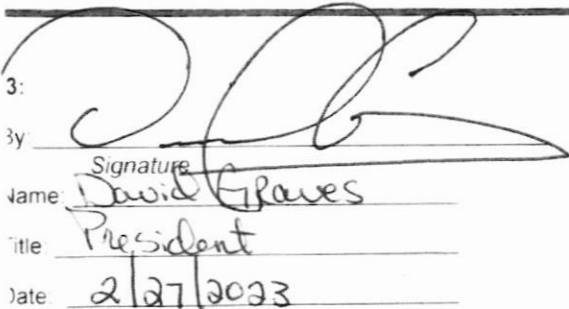 3:
By:
Signature
Name: David Graves
Title: President
Date: 2/27/2023